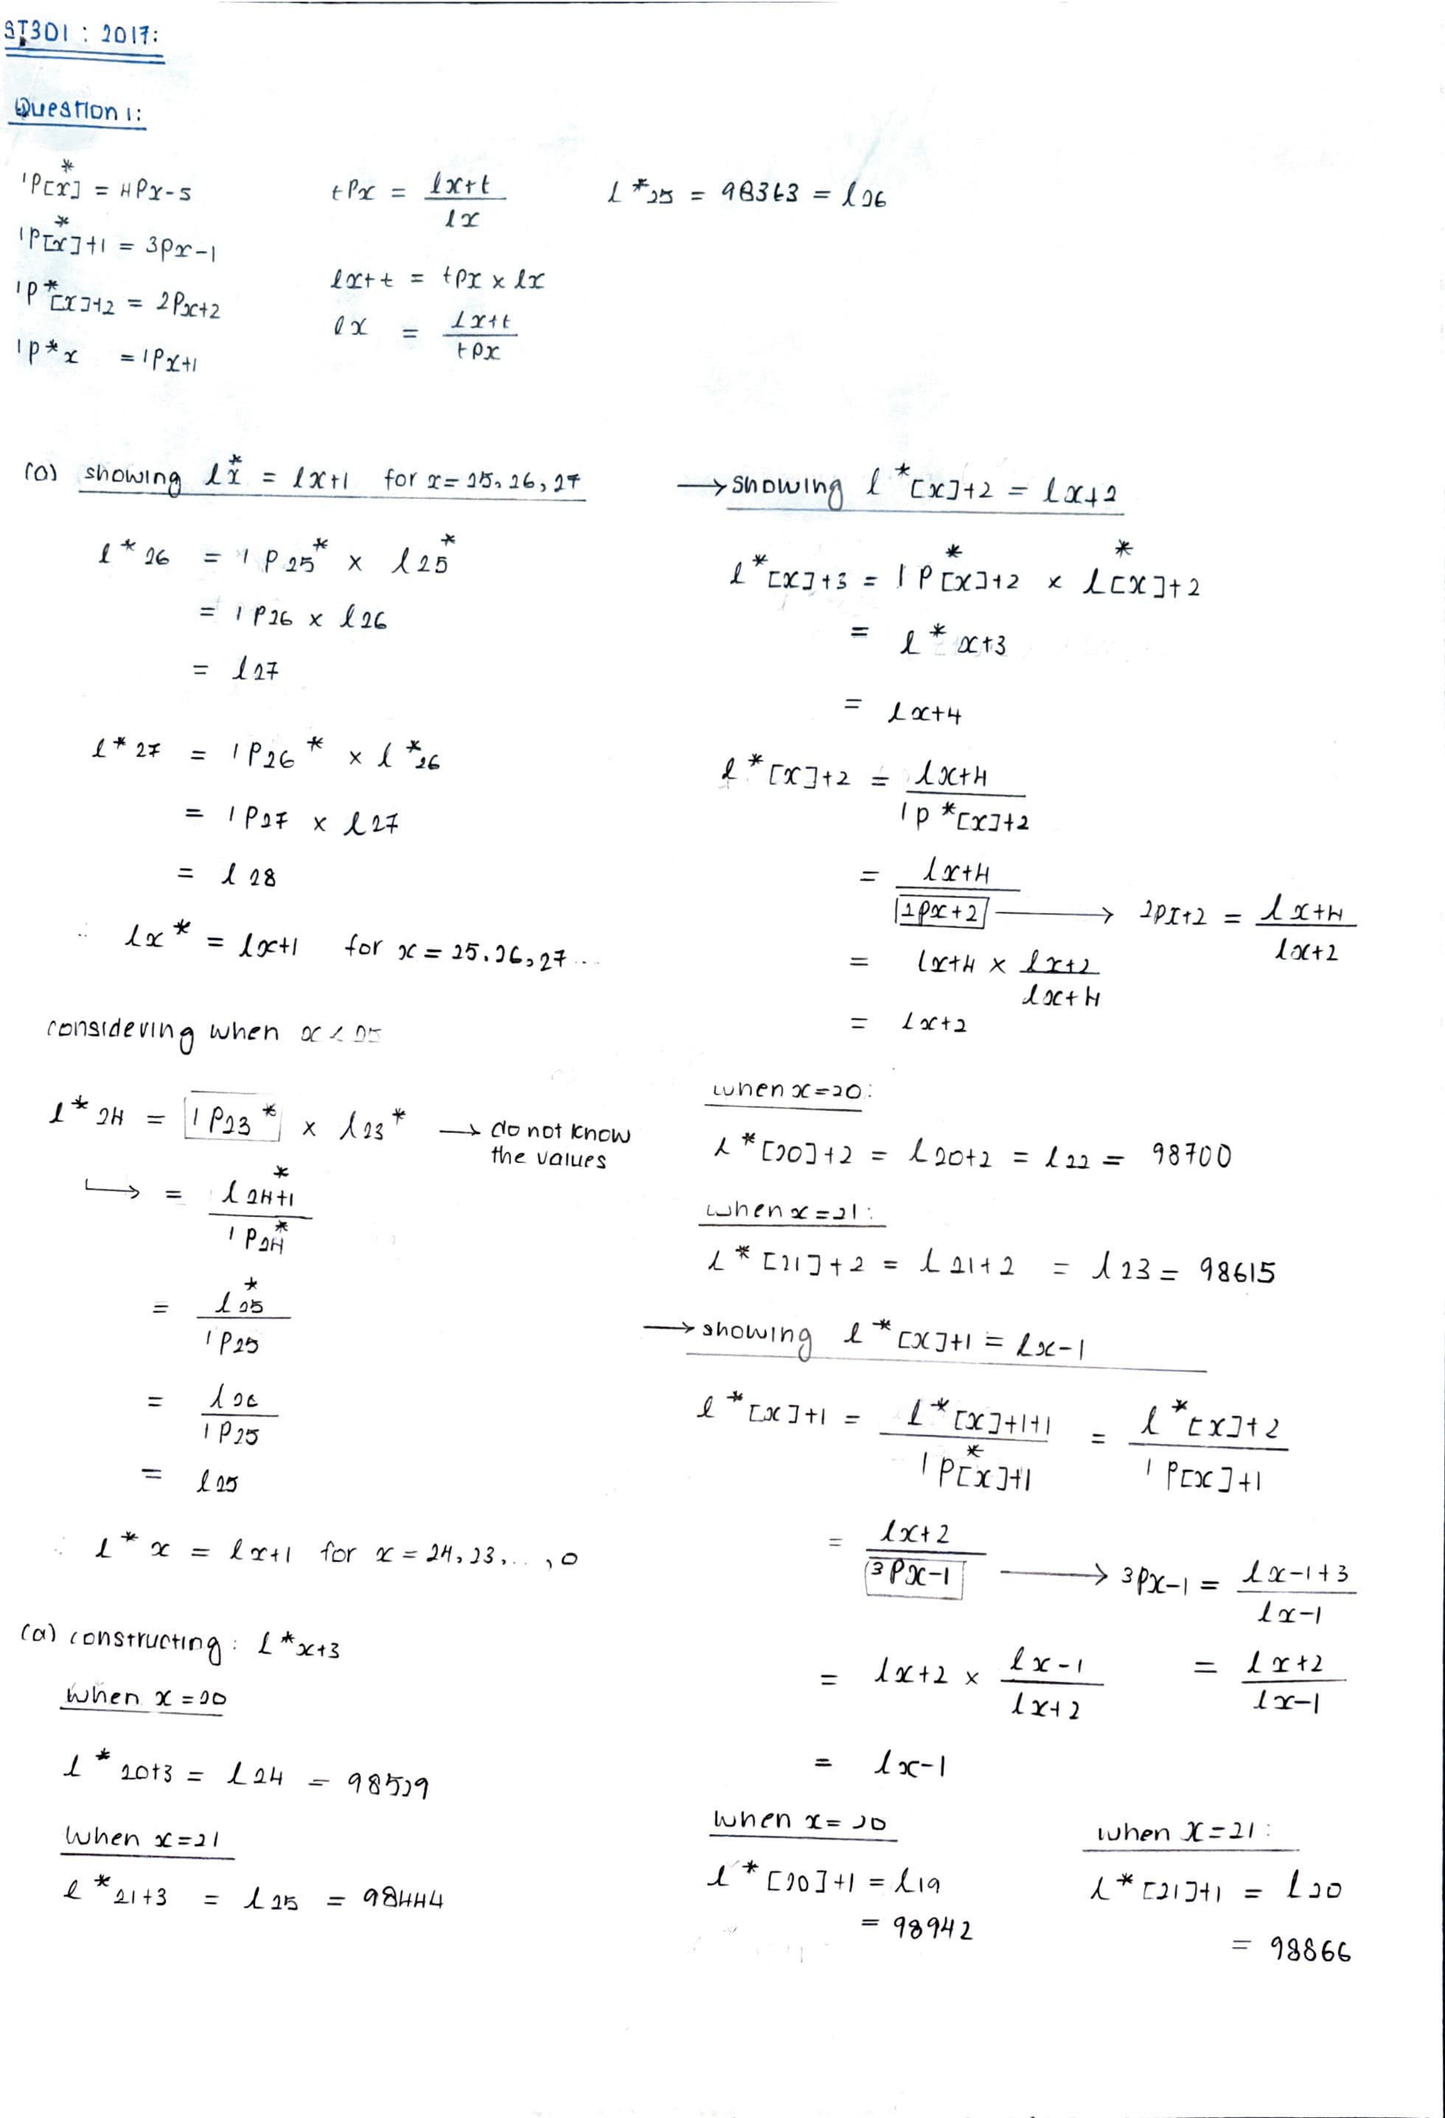 ST301 : 2017:
Question 1:
1P[x]* = 4Px-5
1P[x]*+1 = 3Px-1
1P*[x]+2 = 2Px+2
1P*x = 1Px+1
tPx = lx+t / lx
lx+t = tPx × lx
lx = lx+t / tPx
l*25 = 98363 = l26
(a) showing l*x = lx+1 for x = 25, 26, 27
l*26 = 1P25* × l25*
= 1P26 × l26
= l27
l*27 = 1P26* × l*26
= 1P27 × l27
= l28
∴ lx* = lx+1 for x = 25, 26, 27 ...
considering when x < 25
l*24 = 1P23* × l23* → do not know the values
↳ = l24+1* / 1P24*
= l25* / 1P25
= l26 / 1P25
= l25
∴ l*x = lx+1 for x = 24, 23, ..., 0
(a) constructing: l*x+3
when x = 20
l*20+3 = l24 = 98529
when x = 21
l*21+3 = l25 = 98444
→ showing l*[x]+2 = lx+2
l*[x]+3 = 1P[x]*+2 × l[x]*+2
= l*x+3
= lx+4
l*[x]+2 = lx+4 / 1P*[x]+2
= lx+4 / 2Px+2 → 2Px+2 = lx+4 / lx+2
= lx+4 × lx+2 / lx+4
= lx+2
when x = 20:
l*[20]+2 = l20+2 = l22 = 98700
when x = 21:
l*[21]+2 = l21+2 = l23 = 98615
→ showing l*[x]+1 = lx-1
l*[x]+1 = l*[x]+1+1 / 1P[x]*+1 = l*[x]+2 / 1P[x]+1
= lx+2 / 3Px-1 → 3Px-1 = lx-1+3 / lx-1
= lx+2 × lx-1 / lx+2 = lx+2 / lx-1
= lx-1
when x = 20
l*[20]+1 = l19
= 98942
when x = 21:
l*[21]+1 = l20
= 98866